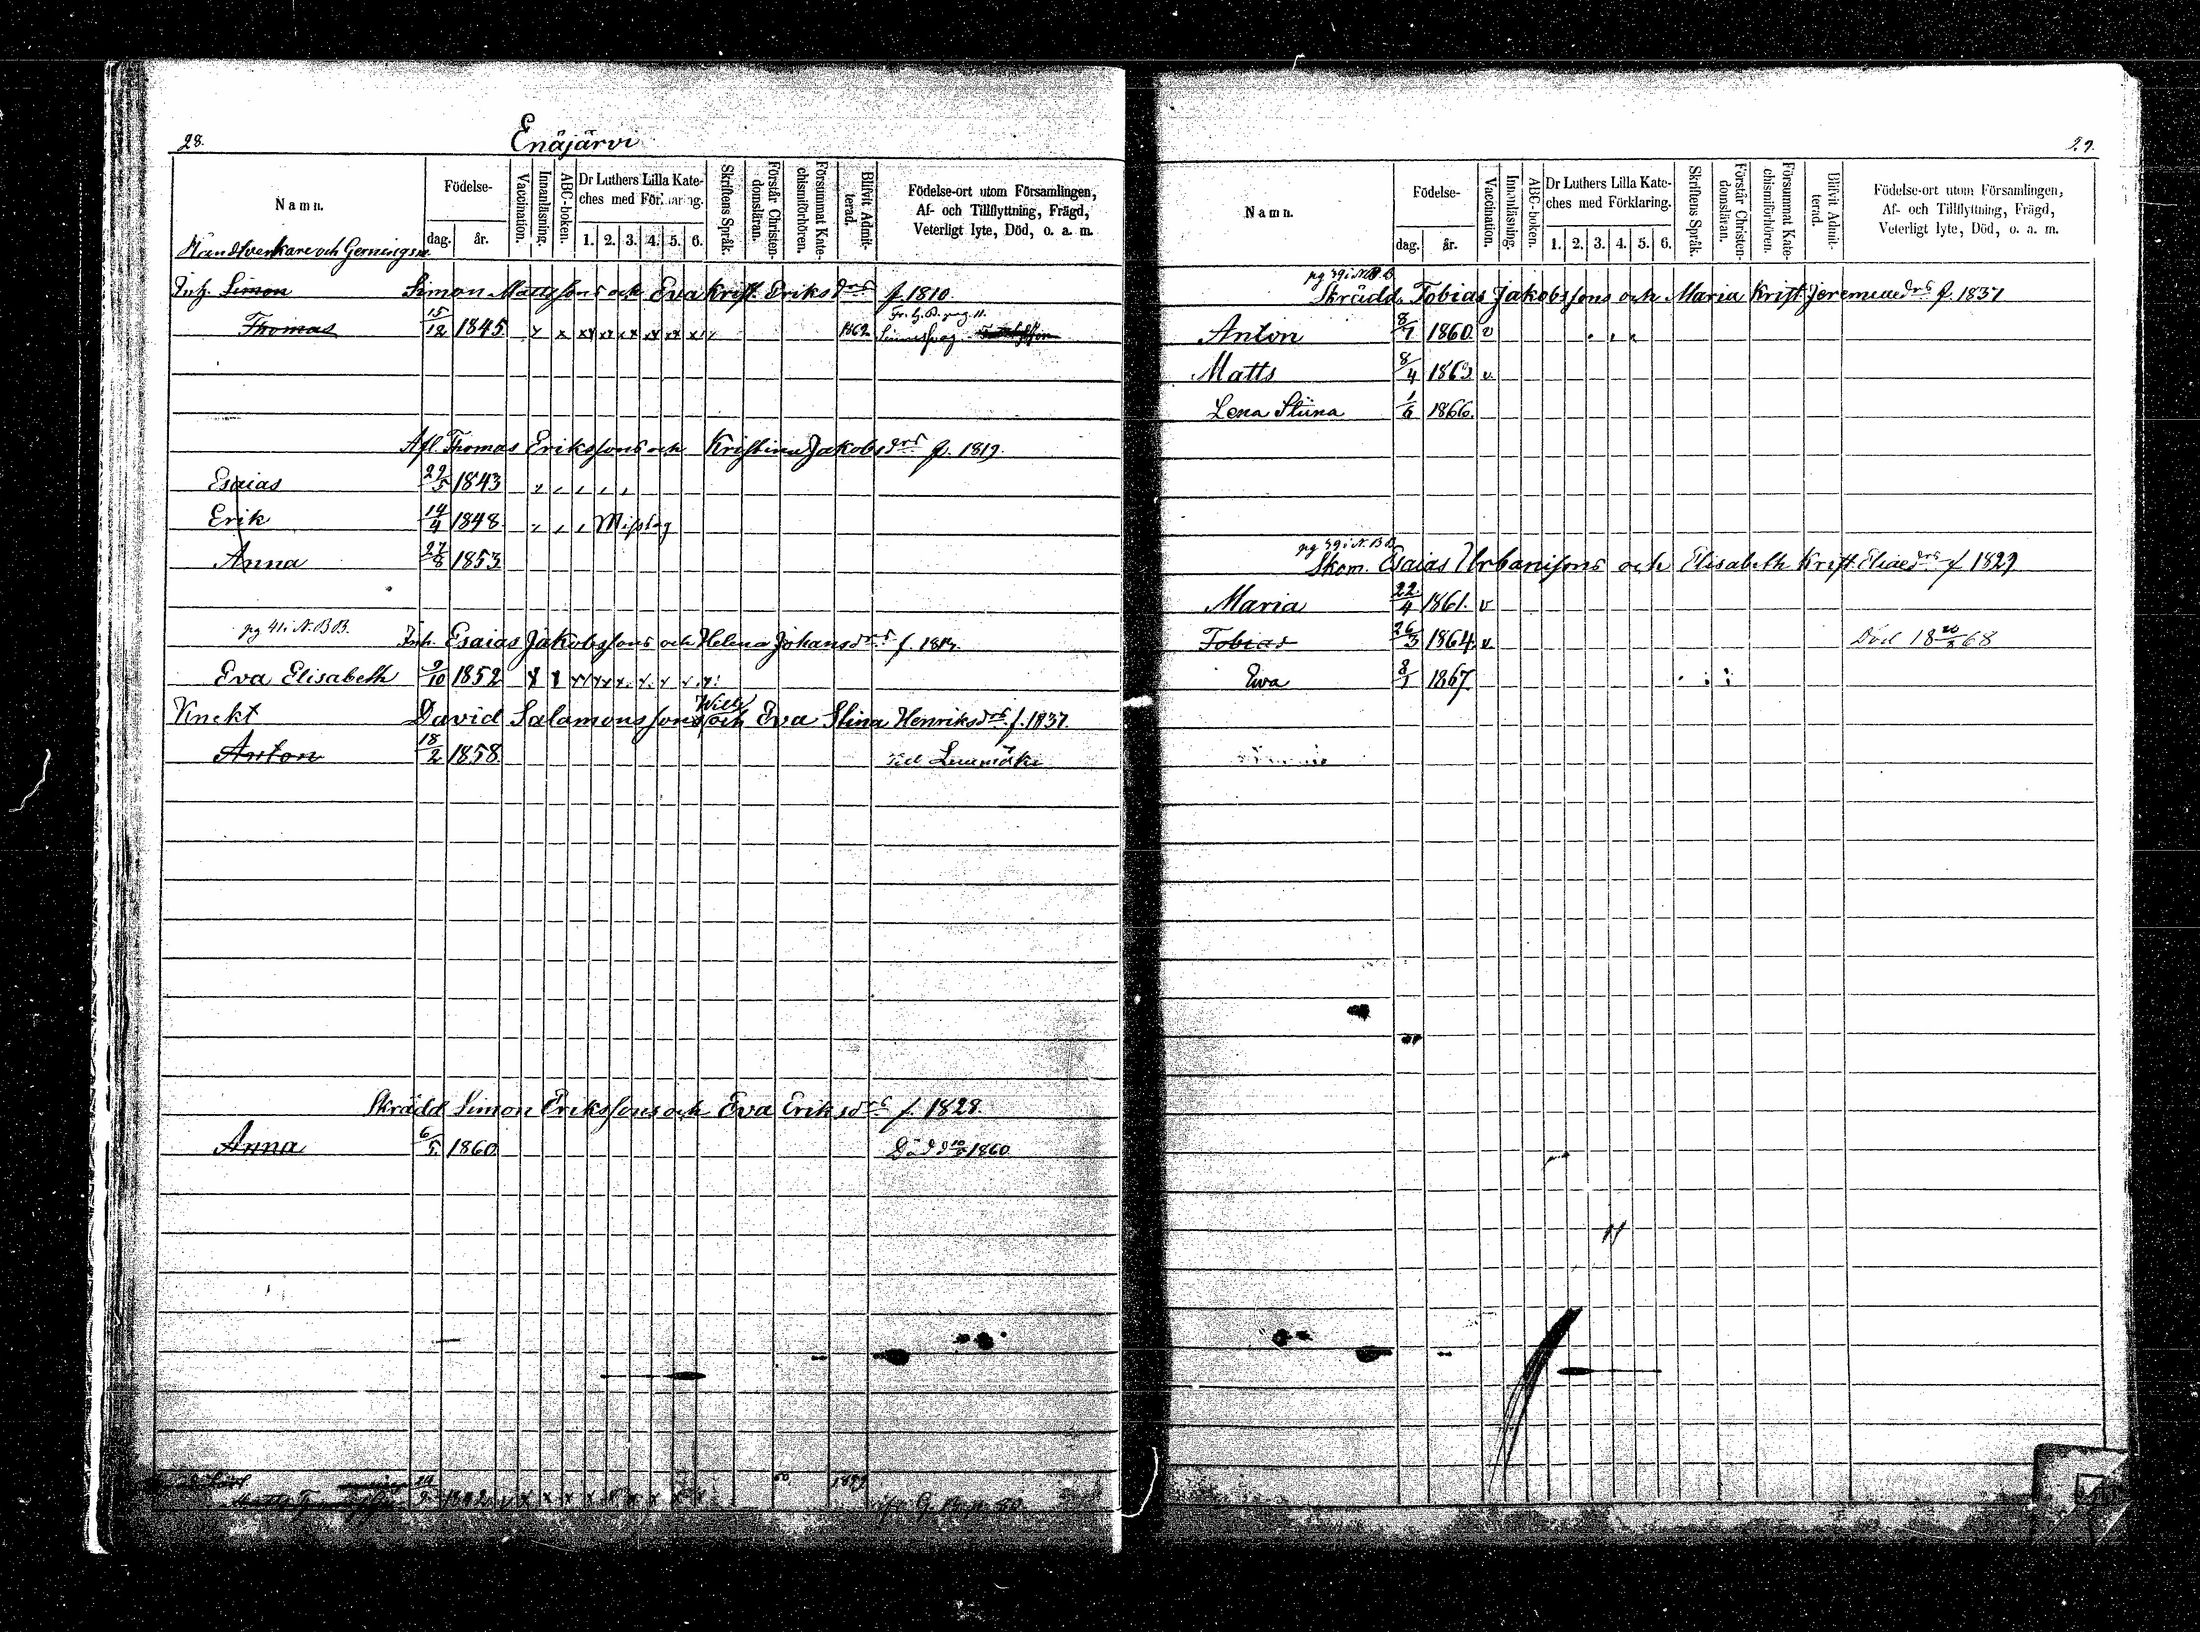 28.
Enäjärvi
Namn.
Födelse-
dag.
år.
Vaccination.
Innanläsning.
ABC-boken.
Dr Luthers Lilla Kate-
ches med Förklaring.
1. 2. 3. 4. 5. 6.
Skriftens Språk.
Förstår Christen-
domsläran.
Försummat Kate-
chismiförhören.
Blifvit Admit-
terad.
Födelse-ort utom Församlingen,
Af- och Tillflyttning, Frägd,
Veterligt lyte, Död, o. a. m.
Handtverkare och Gerningsm.
Inh. Simon Simon Mattssons och Eva Krist. Eriksdrs f. 1810.
Thomas 15/12 1845 1862
Afl. Thomas Erikssons och Kristina Jakobsdrs f. 1819.
Esaias 22/5 1843
Erik 14/4 1848
Anna 27/8 1853
pg 41 i N. B B.
Inh. Esaias Jakobssons och Helena Johansdrs f.
Eva Elisabeth 9/10 1852
Knekt David Salamonssons Will och Eva Stina Henriksdrs f. 1837.
Anton 18/2 1858 till
Skrädd Simon Erikssons och Eva Eriksdrs f. 1828.
Anna 6/5 1860 Död 1860
29.
Namn.
Födelse-
dag.
år.
Vaccination.
Innanläsning.
ABC-boken.
Dr Luthers Lilla Kate-
ches med Förklaring.
1. 2. 3. 4. 5. 6.
Skriftens Språk.
Förstår Christen-
domsläran.
Försummat Kate-
chismiförhören.
Blifvit Admit-
terad.
Födelse-ort utom Församlingen,
Af- och Tillflyttning, Frägd,
Veterligt lyte, Död, o. a. m.
pg 39 i N. B B
Skrädd. Tobias Jakobssons och Maria Krist. Jeremiaedrs f. 1837
Anton 8/7 1860 v
Matts 8/4 1863 v
Lena Stiina 1/6 1866.
pg 39 i N. B B
Skom. Esaias Urbanssons och Elisabeth Krist. Eliaedrs f 1829
Maria 22/4 1861. v
Tobias 26/3 1864 v Död 18 20/2 68
Eva 8/1 1867